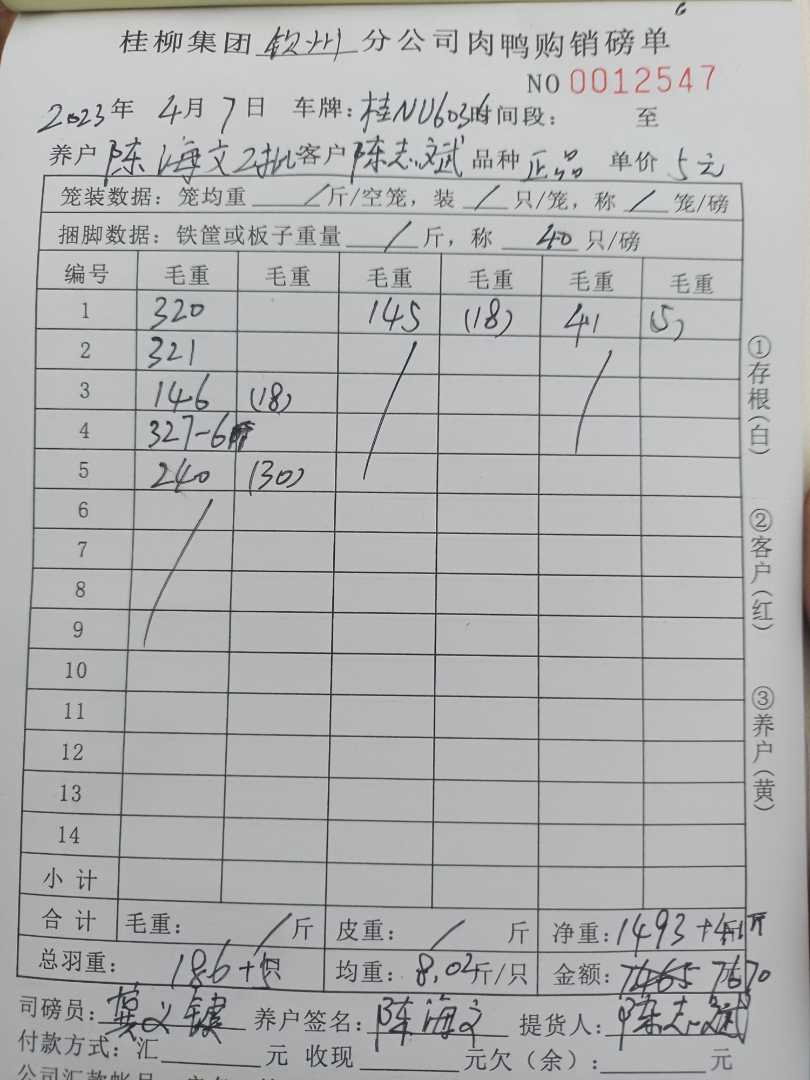 桂柳集团钦州分公司肉鸭购销磅单
NO 0012547
2023年 4月 7日 车牌：桂NU6036 时间段： 至
养户 陈海文2批 客户 陈志斌 品种 正品 单价 5元
笼装数据：笼均重 / 斤/空笼，装 / 只/笼，称 / 笼/磅
捆脚数据：铁筐或板子重量 / 斤，称 40 只/磅
编号 毛重 毛重 毛重 毛重 毛重 毛重
1 320 145 (18) 41 (5)
2 321
3 146 (18)
4 327-6
5 240 (30)
6
7
8
9
10
11
12
13
14
小计
合计 毛重： / 斤 皮重： / 斤 净重：1493+41斤
总羽重： 186+5只 均重：8.02斤/只 金额：7465 7670
司磅员： 养户签名：陈海文 提货人：陈志斌
付款方式：汇 元 收现 元欠（余）： 元
①存根（白）
②客户（红）
③养户（黄）